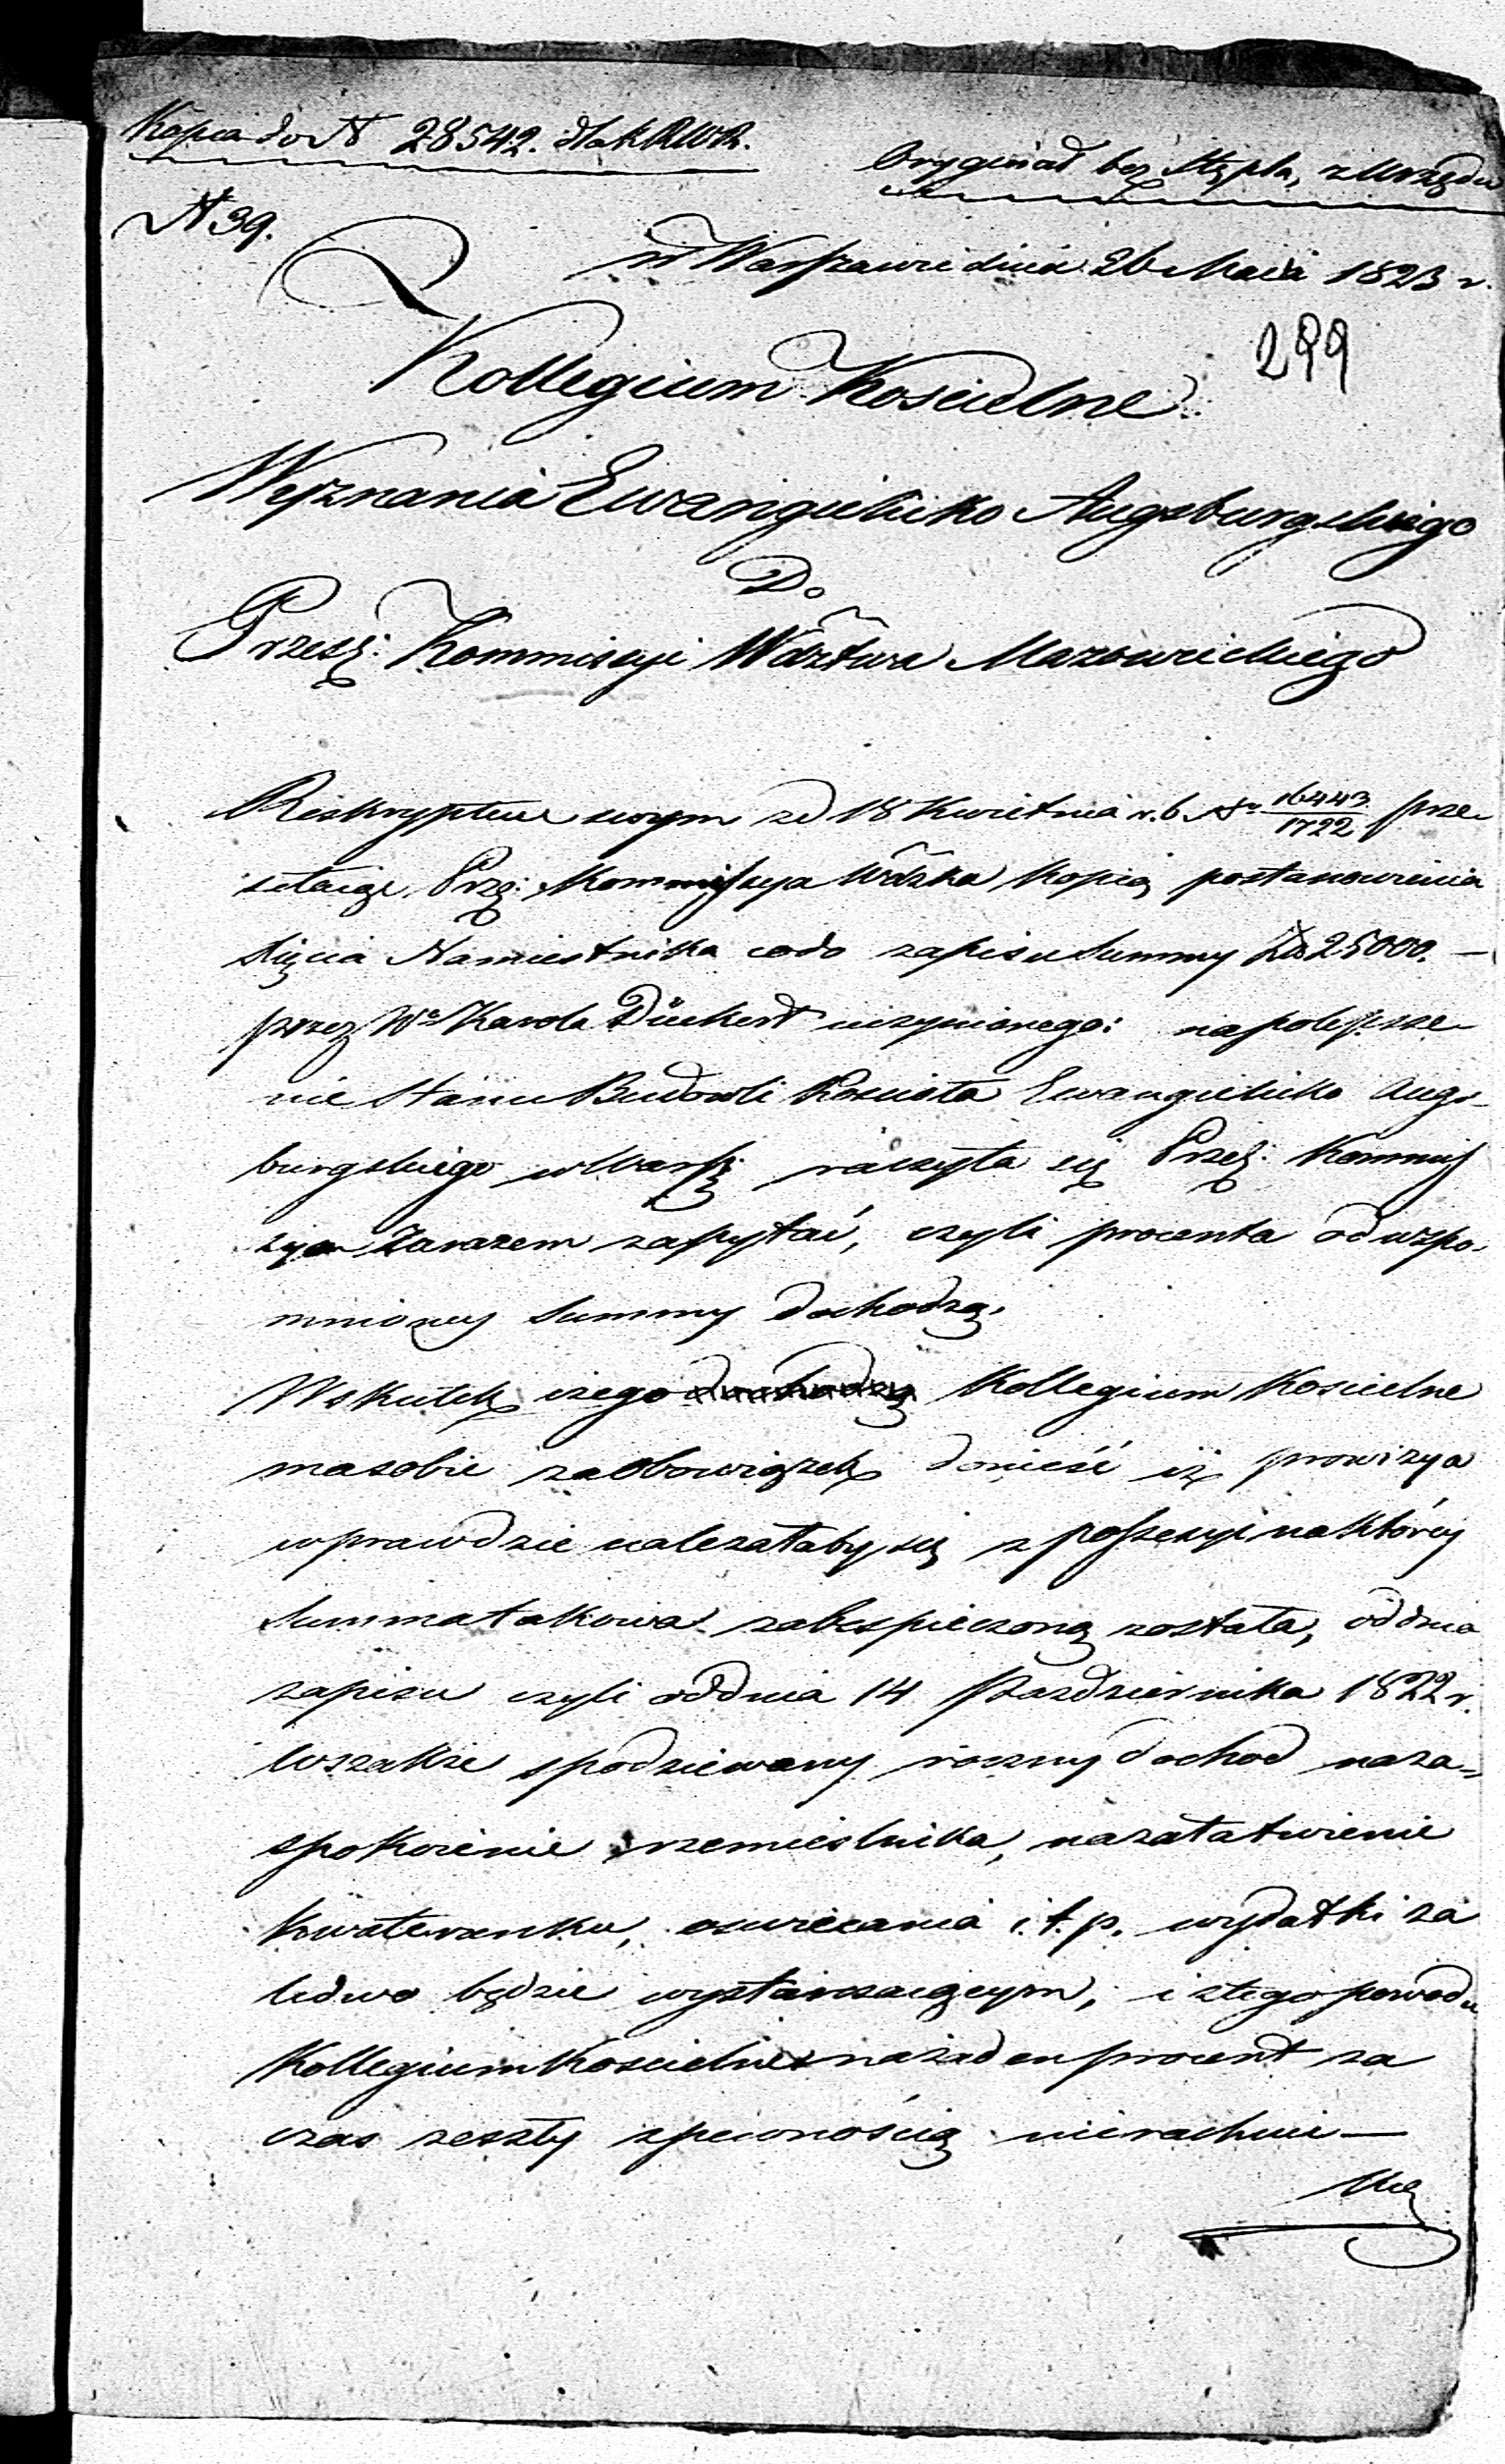 Kopia do N 28542. dla KRWR.
Oryginał bez Stępla, z Urzędu
N 39.
w Warszawie dnia 26 Maia 1823 r.
299
Kollegium Koscielne
Wyznania Ewangielicko Augsburgskiego
Do
Prześ: Kommissyi Wdztwa Mazowieckiego
Reskryptem swym z d 18 Kwietnia r. b. No 16443/1722 prze-
sełaiąc Prze: Kommissya Wdzka Kopią postanowienia
Xięcia Namiestnika co do zapisu Summy Złp 25000. —
przez Wo Karola Dückert uczynionego: na polepsze-
nie Stanu Budowli Koscioła Ewangielicko Augs-
burgskiego w Warsz: raczyła się Prześ: Kommis
sya Zarazem zapytać, czyli procenta od wspo-
mnioney Summy dochodzą,
W skutek czego dochodzą Kollegium Koscielne
ma sobie za obowiązek donieść iż prowizya
wprawdzie należałaby się z possessyi na którey
Summa takowa zabespieczoną została, od dnia
zapisu czyli od dnia 14 Pazdziernika 1822 r.
Wszakże spodziewany roczny dochod na za-
spokoienie rzemieslnika, na załatwienie
Kwaterunku, oswiecania i. t. p. wydatki za
ledwo będzie wystarczaiącym, i z tego powodu
Kollegium Koscielne na żaden procent za
czas zeszły z pewnością nie rachuie —